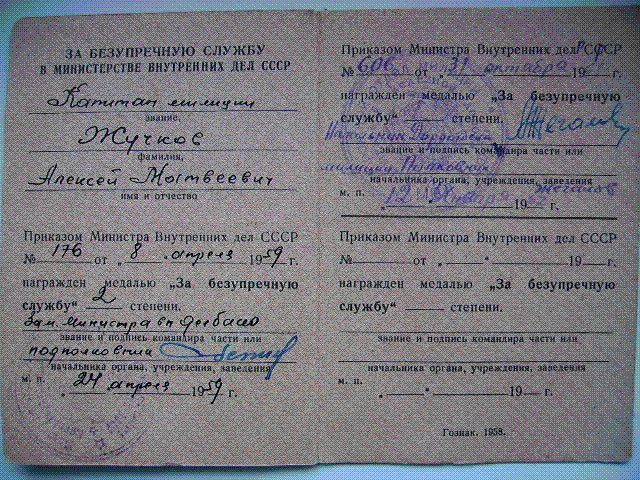 ЗА БЕЗУПРЕЧНУЮ СЛУЖБУ
В МИНИСТЕРСТВЕ ВНУТРЕННИХ ДЕЛ СССР
Капитан милиции
звание,
Жучков
фамилия,
Алексей Матвеевич
имя и отчество
Приказом Министра Внутренних дел СССР
№ 176 от „ 8 “ апреля 1959 г.
награжден медалью „За безупречную
службу“ 2 степени.
Зам. министра вн дел
звание и подпись командира части или
подполковник
начальника органа, учреждения, заведения
м. п.
„ 24 “ апреля 1959 г.
Приказом Министра Внутренних дел СССР
№ 606 от „ 31 “ октября 196 г.
награжден медалью „За безупречную
службу“ степени.
Начальник
звание и подпись командира части или
милиции
начальника органа, учреждения, заведения
Жегалов
м. п. „ 12 “ 1962 г.
Приказом Министра Внутренних дел СССР
№ от „ “ 19 г.
награжден медалью „За безупречную
службу“ степени.
звание и подпись командира части или
начальника органа, учреждения, заведения
м. п.
„ “ 19 г.
Гознак. 1958.